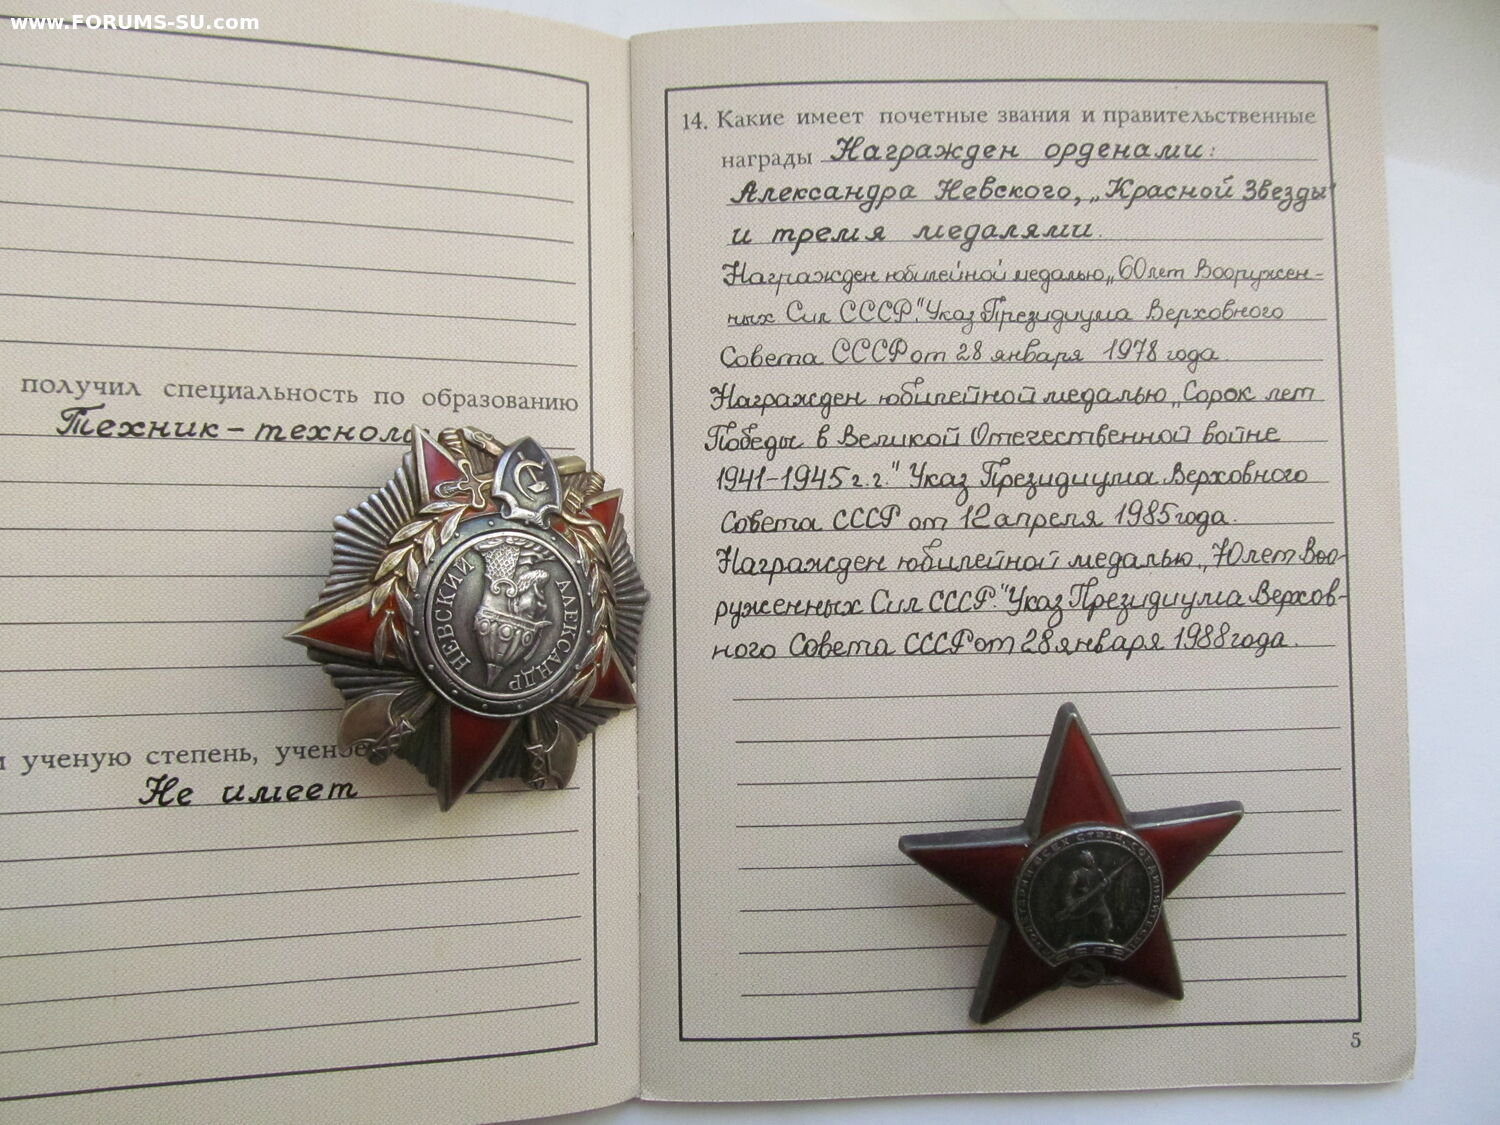 www.FORUMS-SU.com
получил специальность по образованию
Техник-техноло
НЕВСКИЙ
АЛЕКСАНДР
ученую степень, ученое
Не имеет
14. Какие имеет почетные звания и правительственные
награды Награжден орденами:
Александра Невского, „Красной Звезды"
и тремя медалями.
Награжден юбилейной медалью „60 лет Вооружен-
ных Сил СССР." Указ Президиума Верховного
Совета СССР от 28 января 1978 года.
Награжден юбилейной медалью „Сорок лет
Победы в Великой Отечественной войне
1941-1945 г.г." Указ Президиума Верховного
Совета СССР от 12 апреля 1985 года.
Награжден юбилейной медалью „70 лет Воо-
руженных Сил СССР." Указ Президиума Верхов-
ного Совета СССР от 28 января 1988 года.
ПРОЛЕТАРИИ ВСЕХ СТРАН, СОЕДИНЯЙТЕСЬ!
СССР
5